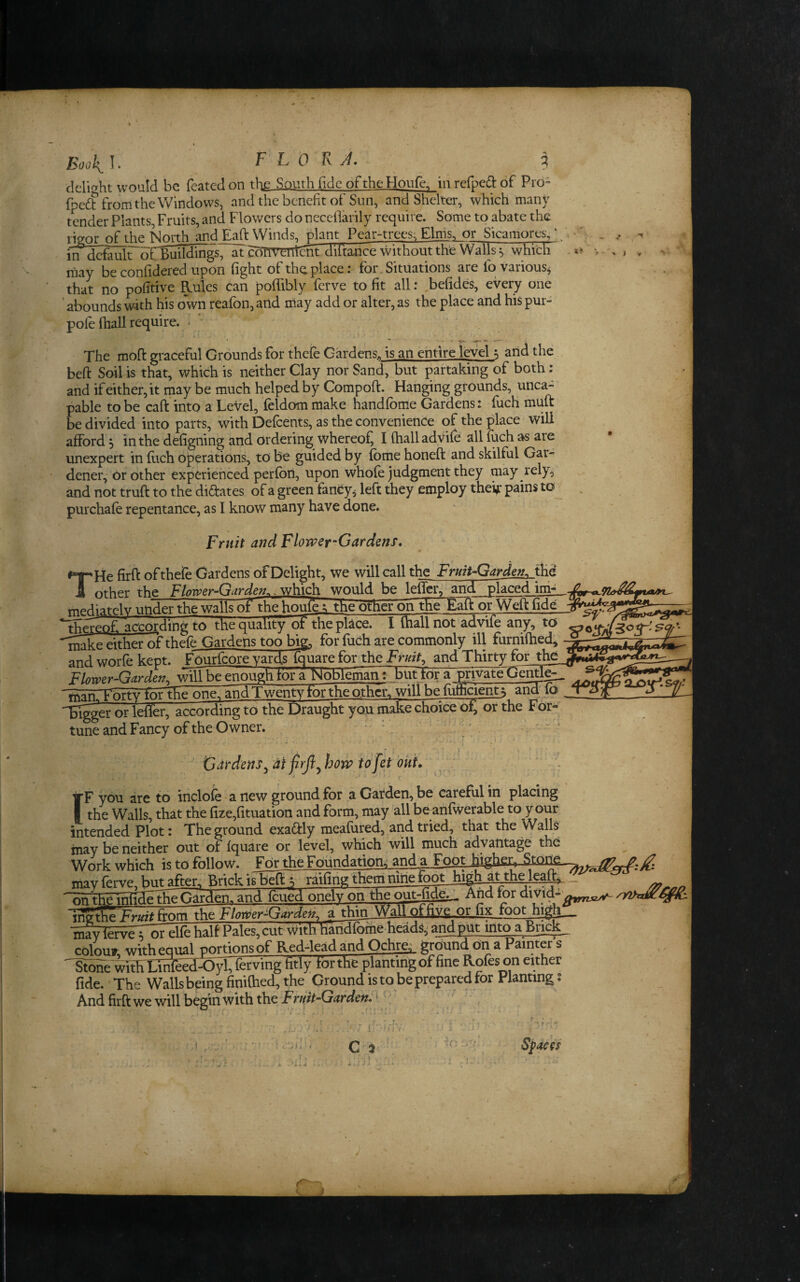 Book I. FLORA. 3
delight would be ſeated on the South ſide of the Houſe, in reſpect of Pro-
ſpect from the Windows, and the benefit of Sun, and Shelter, which many
tender Plants, Fruits, and Flowers do neceſſarily require. Some to abate the
rigor of the North and Eaſt Winds, plant Pear-trees, Elms, or Sicamores,
in default of Buildings, at convenient diſtance without the Walls; which
may be conſidered upon ſight of the place: for Situations are ſo various,
that no poſitive Rules can poſſibly ſerve to fit all: beſides, every one
abounds with his own reaſon, and may add or alter, as the place and his pur-
poſe ſhall require.
The moſt graceful Grounds for theſe Gardens, is an entire level; and the
beſt Soil is that, which is neither Clay nor Sand, but partaking of both:
and if either, it may be much helped by Compoſt. Hanging grounds, unca-
pable to be caſt into a Level, ſeldom make handſome Gardens: ſuch muſt
be divided into parts, with Deſcents, as the convenience of the place will
afford; in the deſigning and ordering whereof, I ſhall adviſe all ſuch as are
unexpert in ſuch operations, to be guided by ſome honeſt and skilful Gar-
dener, or other experienced perſon, upon whoſe judgment they may rely,
and not truſt to the dictates of a green fancy, leſt they employ their pains to
purchaſe repentance, as I know many have done.
Fruit and Flower-Gardens.
THe firſt of theſe Gardens of Delight, we will call the Fruit-Garden, the
other the Flower-Garden, which would be leſſer, and placed im-
mediately under the walls of the houſe; the other on the Eaſt or Weſt ſide
thereof, according to the quality of the place. I ſhall not adviſe any, to
make either of theſe Gardens too big, for ſuch are commonly ill furniſhed,
and worſe kept. Fourſcore yards ſquare for the Fruit, and Thirty for the
Flower-Garden, will be enough for a Nobleman: but for a private Gentle-
man, Forty for the one, and Twenty for the other, will be ſufficient; and ſo
bigger or leſſer, according to the Draught you make choice of, or the For-
tune and Fancy of the Owner.
Gardens, at firſt, how to ſet out.
IF you are to incloſe a new ground for a Garden, be careful in placing
the Walls, that the ſize, ſituation and form, may all be anſwerable to your
intended Plot: The ground exactly meaſured, and tried, that the Walls
may be neither out of ſquare or level, which will much advantage the
Work which is to follow. For the Foundation, and a Foot higher, Stone
may ſerve, but after, Brick is beſt; raiſing them nine foot high at the leaſt,
on the inſide the Garden, and ſcued onely on the out-ſide. And for divid-
ing the Fruit from the Flower-Garden, a thin Wall of five or ſix foot high
may ſerve; or elſe half Pales, cut with handſome heads, and put into a Brick
colour, with equal portions of Red-lead and Ochre, ground on a Painters
Stone with Linſeed-Oyl, ſerving fitly for the planting of fine Roſes on either
ſide. The Walls being finiſhed, the Ground is to be prepared for Planting:
And firſt we will begin with the Fruit-Garden.
C 2 Spaces